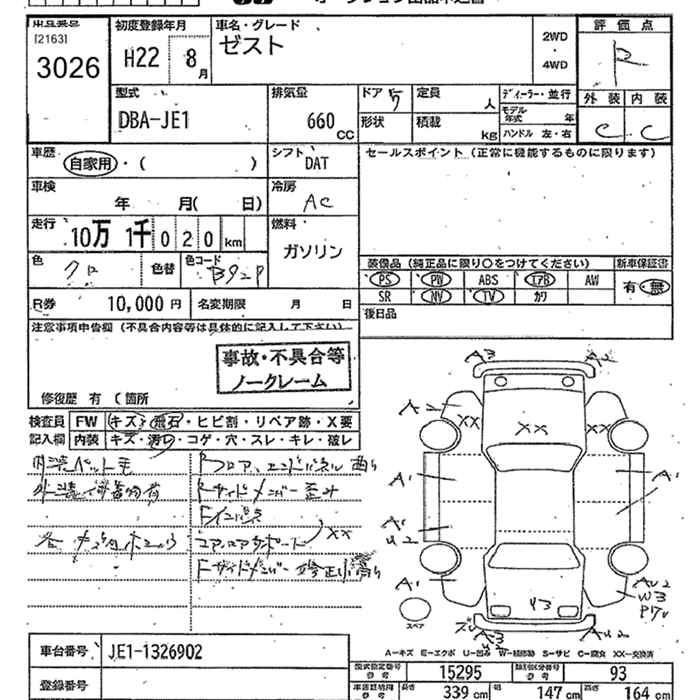 [2163]
3026
初度登録年月
H22 8月
車名・グレード
ゼスト
2WD
・
4WD
評価点
R
外装 内装
C C
型式
DBA-JE1
排気量
660 CC
ドア 5
定員 人
形状
積載 kg
ディーラー・並行
モデル年式 年
ハンドル 左・右
車歴
自家用・( )
シフト
DAT
セールスポイント (正常に機能するものに限ります)
車検
年 月( 日)
冷房
AC
走行
10万 1千 0 2 0 km
燃料
ガソリン
色
クロ
色替
色コード
B92P
装備品 (純正品に限り○をつけてください)
新車保証書
PS PW ABS エアB AW
有・無
SR NV TV カワ
R券 10,000円
名変期限 月 日
後日品
注意事項申告欄 (不具合内容等は具体的に記入して下さい)
事故・不具合等
ノークレーム
修復歴 有 (箇所
検査員
記入欄
FW キズ・飛石・ヒビ割・リペア跡・X要
内装 キズ・汚れ・コゲ・穴・スレ・キレ・破レ
内装ペット毛
Rフロア、エンドパネル曲り
Rサイドメンバー歪み
Fインパネ
コアコアサポート XX
Fサイドメンバー修正
A3 A2
A2 XX XX XX
A1 A1
A1
U2
A1
U3
AU2
W3
スペア
A3
U2
AU2
A−キズ E−エクボ U−凹み W−補修跡 S−サビ C−腐食 XX−交換済
車台番号 JE1-1326902
型式指定番号
参考
15295
類別区分番号
参考
93
登録番号
長さ 339 cm 幅 147 cm 高さ 164 cm